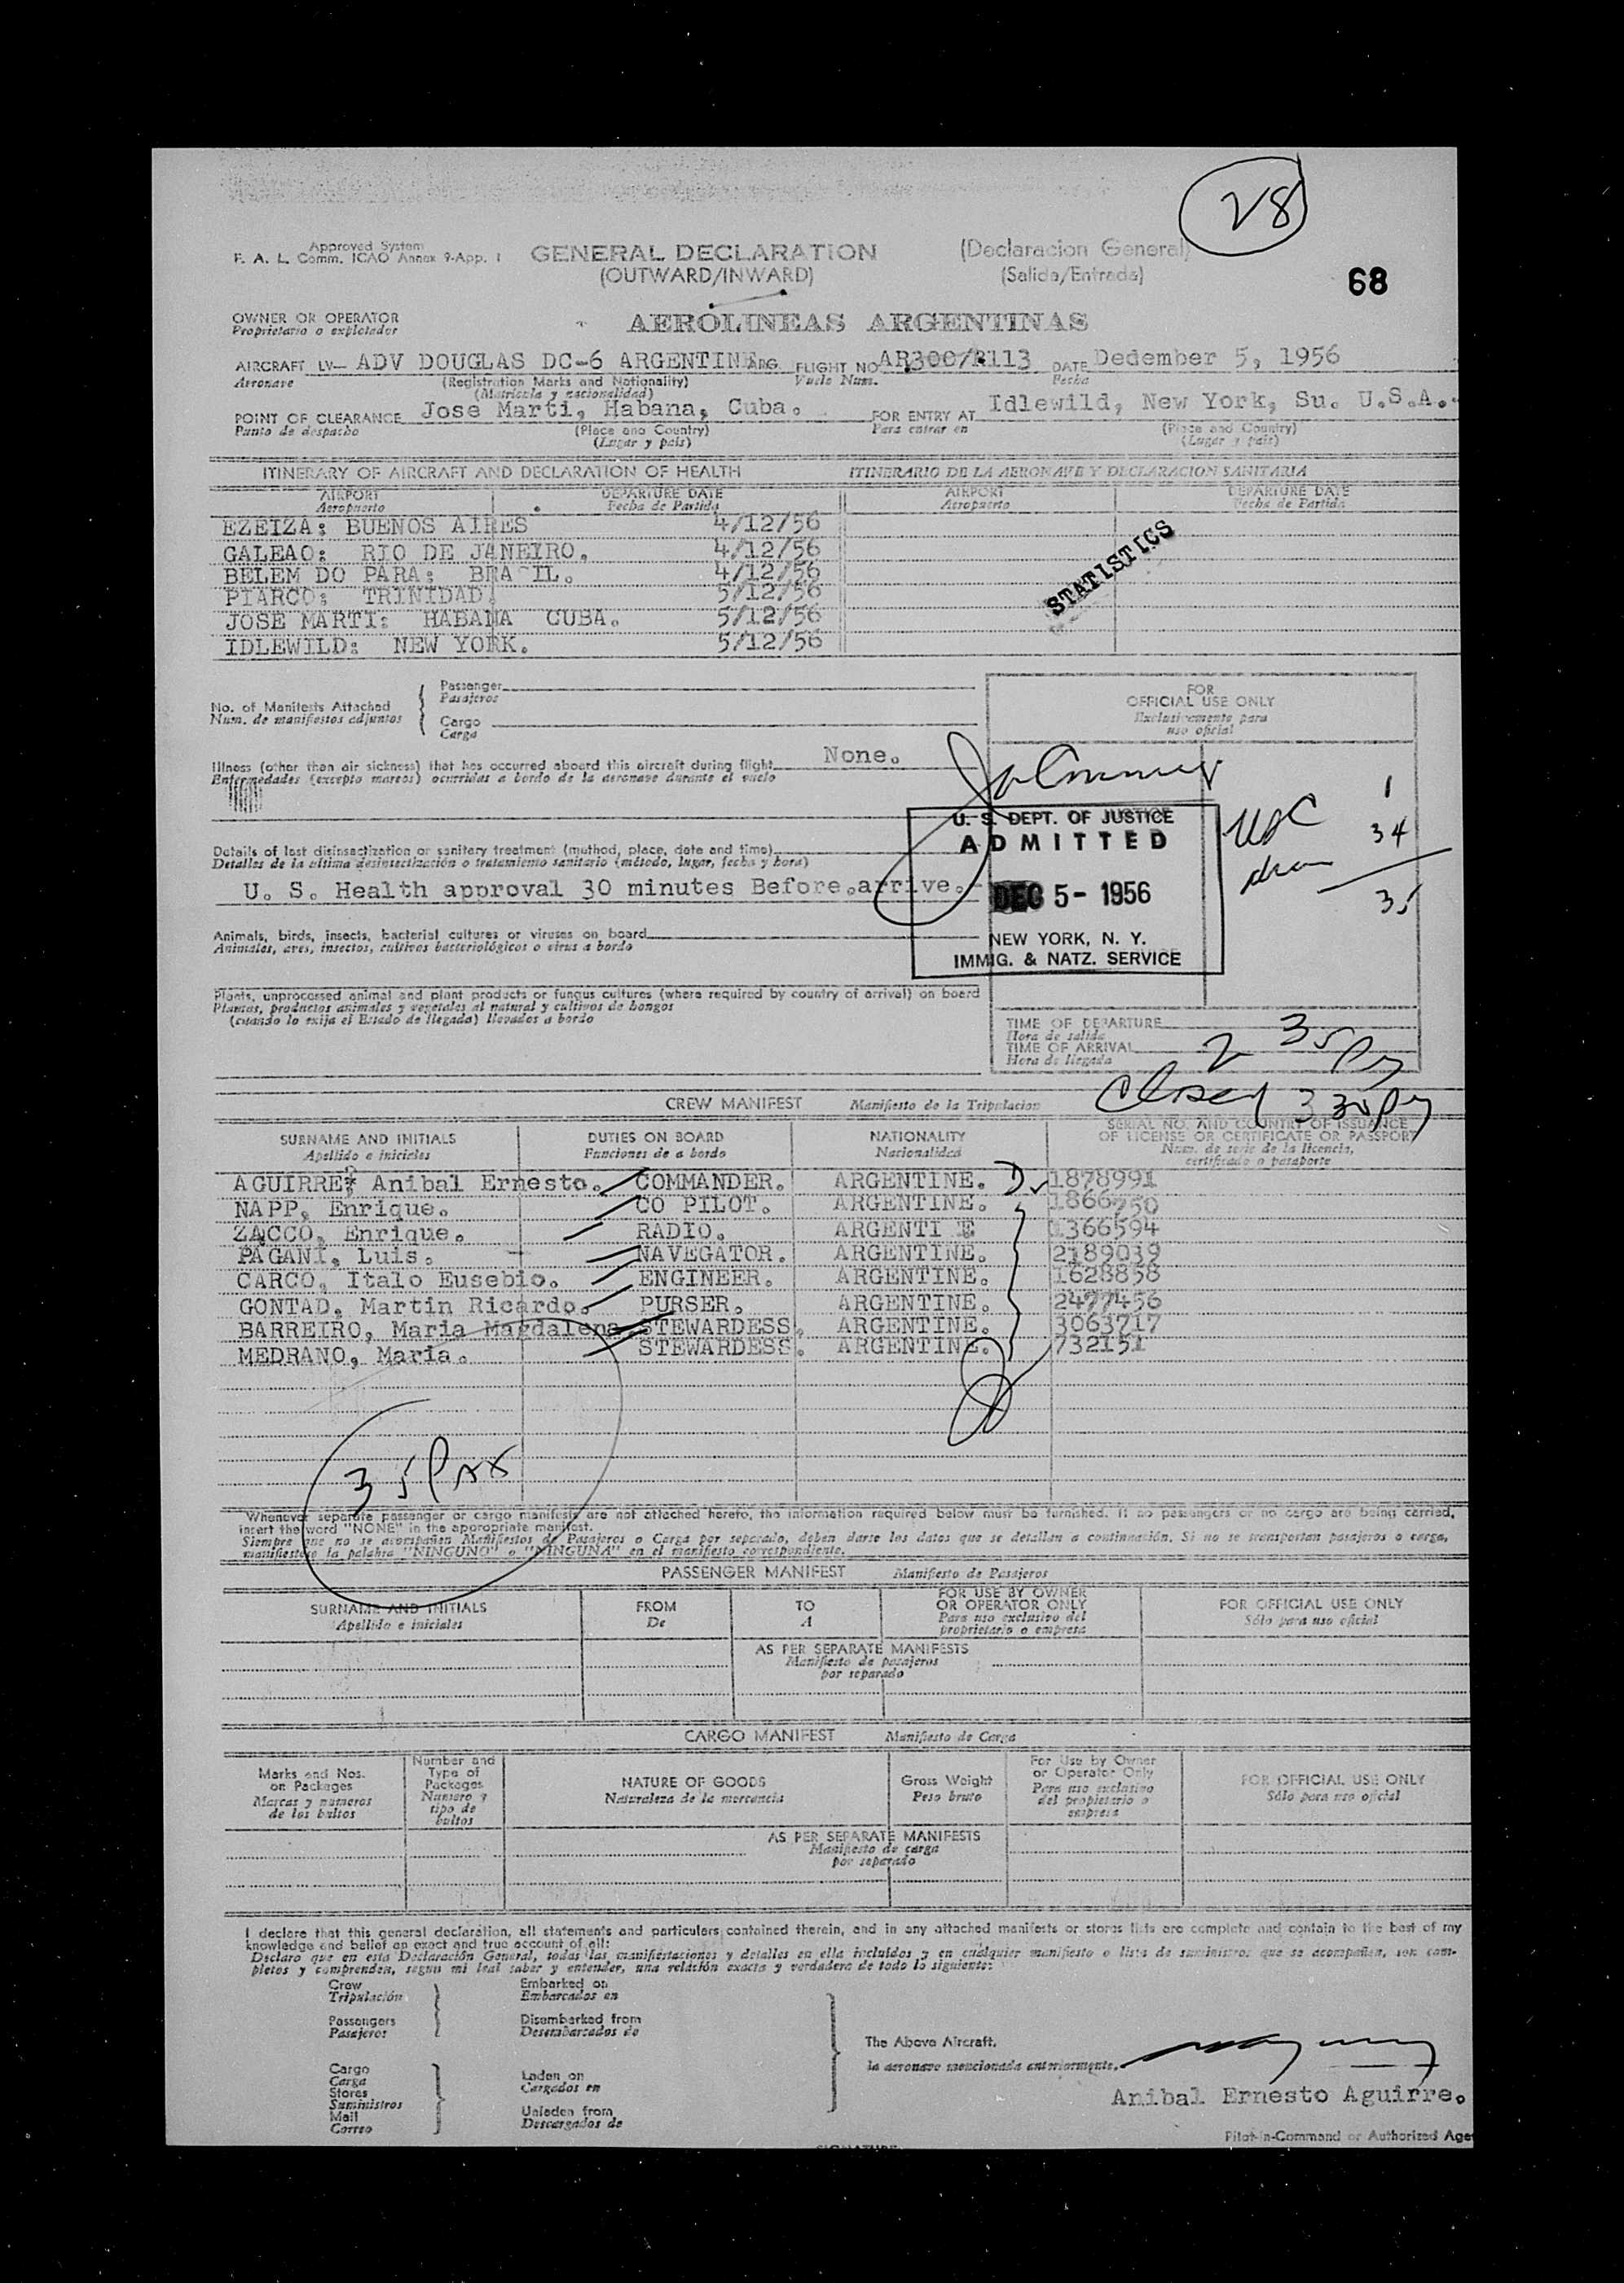 28
Approved System
F. A. L. Comm. ICAO Annex 9-App. 1
GENERAL DECLARATION
(Declaracion General)
(OUTWARD/INWARD)
(Salida/Entrada)
68
OWNER OR OPERATOR
Proprietario o explotador
AEROLINEAS ARGENTINAS
AIRCRAFT LV— ADV DOUGLAS DC-6 ARGENTINE ARG. FLIGHT NO AR300/R113 DATE Dedember 5, 1956
Aeronave (Registration Marks and Nationality) Vuelo Num. Fecha
(Matricula y nacionalidad)
POINT OF CLEARANCE Jose Marti, Habana, Cuba. FOR ENTRY AT Idlewild, New York, Su. U.S.A.
Punto de despacho (Place and Country) Para entrar en (Place and Country)
(Lugar y país) (Lugar y país)
ITINERARY OF AIRCRAFT AND DECLARATION OF HEALTH ITINERARIO DE LA AERONAVE Y DECLARACION SANITARIA
AIRPORT DEPARTURE DATE AIRPORT DEPARTURE DATE
Aeropuerto Fecha de Partida Aeropuerto Fecha de Partida
EZEIZA: BUENOS AIRES 4/12/56
GALEAO: RIO DE JANEIRO. 4/12/56
BELEM DO PARA: BRA IL. 4/12/56
PIARCO: TRINIDAD. 5/12/56
JOSE MARTI: HABANA CUBA. 5/12/56
IDLEWILD: NEW YORK. 5/12/56
STATISTICS
No. of Manifests Attached
Num. de manifiestos adjuntos
Passenger
Pasajeros
Cargo
Carga
FOR
OFFICIAL USE ONLY
Exclusivamente para
uso oficial
Illness (other than air sickness) that has occurred aboard this aircraft during flight None.
Enfermedades (excepto mareos) ocurridas a bordo de la aeronave durante el vuelo
U. S. DEPT. OF JUSTICE
ADMITTED
DEC 5- 1956
NEW YORK, N. Y.
IMMIG. & NATZ. SERVICE
USC 1
34
35
Details of last disinsectization or sanitary treatment (method, place, date and time)
Detalles de la ultima desinsectización o tratamiento sanitario (método, lugar, fecha y hora)
U. S. Health approval 30 minutes Before.arrive.
Animals, birds, insects, bacterial cultures or viruses on board
Animales, aves, insectos, cultivos bacteriológicos o virus a bordo
Plants, unprocessed animal and plant products or fungus cultures (where required by country of arrival) on board
Plantas, productos animales y vegetales al natural y cultivos de hongos
(cuando lo exija el Estado de llegada) llevados a bordo
TIME OF DEPARTURE
Hora de salida
TIME OF ARRIVAL 2 35
Hora de llegada
Closed 3 30
CREW MANIFEST Manifiesto de la Tripulacion
SURNAME AND INITIALS DUTIES ON BOARD NATIONALITY SERIAL NO. AND COUNTRY OF ISSUANCE
Apellido e iniciales Funciones de a bordo Nacionalidad OF LICENSE OR CERTIFICATE OR PASSPORT
Num. de serie de la licencia,
certificado o pasaporte
AGUIRRE, Anibal Ernesto. COMMANDER. ARGENTINE. 1878991
NAPP, Enrique. CO PILOT. ARGENTINE. 1866250
ZACCO, Enrique. RADIO. ARGENTI E 1366594
PAGANI, Luis. NAVEGATOR. ARGENTINE. 2189039
CARCO, Italo Eusebio. ENGINEER. ARGENTINE. 1628858
GONTAD, Martin Ricardo. PURSER. ARGENTINE. 2477456
BARREIRO, Maria Magdalena. STEWARDESS. ARGENTINE. 3063717
MEDRANO, Maria. STEWARDESS. ARGENTINE. 732151
35 Pax
Whenever separate passenger or cargo manifests are not attached hereto, the information required below must be furnished. If no passengers or no cargo are being carried,
insert the word "NONE" in the appropriate manifest.
Siempre que no se acompañen Manifiestos de Pasajeros o Carga por separado, deben darse los datos que se detallan a continuación. Si no se transportan pasajeros o carga,
manifiestese la palabra "NINGUNO" o "NINGUNA" en el manifiesto correspondiente.
PASSENGER MANIFEST Manifiesto de Pasajeros
SURNAME AND INITIALS FROM TO FOR USE BY OWNER FOR OFFICIAL USE ONLY
Apellido e iniciales De A OR OPERATOR ONLY Sólo para uso oficial
Para uso exclusivo del
proprietario o empresa
AS PER SEPARATE MANIFESTS
Manifiesto de pasajeros
por separado
CARGO MANIFEST Manifiesto de Carga
Marks and Nos.
on Packages
Marcas y numeros
de los bultos
Number and
Type of
Packages
Numero y
tipo de
bultos
NATURE OF GOODS
Naturaleza de la mercancia
Gross Weight
Peso bruto
For Use by Owner
or Operator Only
Para uso exclusivo
del propietario o
empresa
FOR OFFICIAL USE ONLY
Sólo para uso oficial
AS PER SEPARATE MANIFESTS
Manifiesto de carga
por separado
I declare that this general declaration, all statements and particulars contained therein, and in any attached manifests or stores lists are complete and contain to the best of my
knowledge and belief an exact and true account of all:
Declaro que en esta Declaración General, todas las manifiestaciones y detalles en ella incluidos y en cualquier manifiesto o lista de suministros que se acompañen, son com-
pletos y comprenden, segun mi leal saber y entender, una relación exacta y verdadera de todo lo siguiente:
Crew
Tripulación
Passengers
Pasajeros
Embarked on
Embarcados en
Disembarked from
Desembarcados de
Cargo
Carga
Stores
Suministros
Mail
Correo
Laden on
Cargados en
Unladen from
Descargados de
The Above Aircraft.
la aeronave mencionada anteriormente.
Anibal Ernesto Aguirre.
Pilot-in-Command or Authorized Age
SIGNATURE